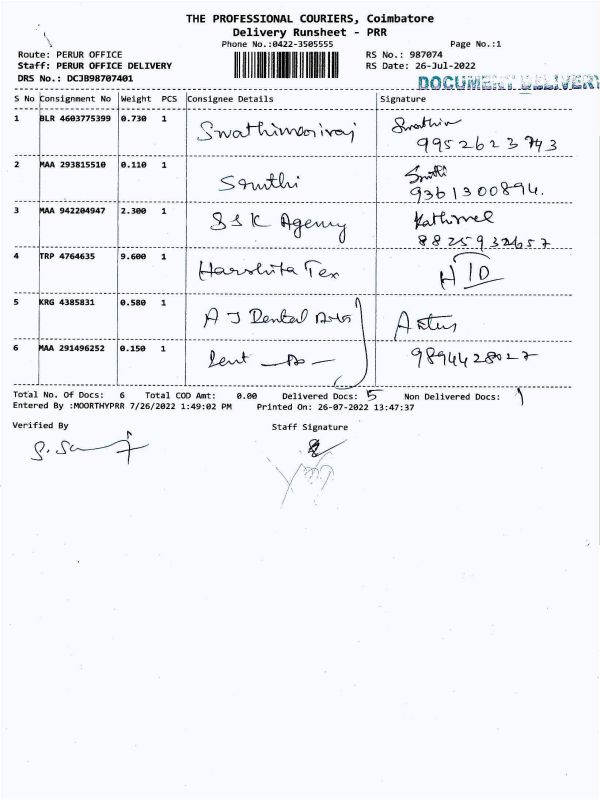 THE PROFESSIONAL COURIERS, Coimbatore
Delivery Runsheet - PRR
Phone No.:0422-3505555 Page No.:1
Route: PERUR OFFICE RS No.: 987074
Staff: PERUR OFFICE DELIVERY RS Date: 26-Jul-2022
DRS No.: DCJB98707401 DOCUMENT DELIVERY
S No Consignment No Weight PCS Consignee Details Signature
1 BLR 4603775399 0.730 1
9952623743
2 MAA 293815510 0.110 1
9361300894.
3 MAA 942204947 2.300 1 SSK Agency Kathirvel
8825932657
4 TRP 4764635 9.600 1 Harshita Tex
5 KRG 4385831 0.580 1 A J Dental Arts
6 MAA 291496252 0.150 1 Dent 9894428027
Total No. Of Docs: 6 Total COD Amt: 0.00 Delivered Docs: 5 Non Delivered Docs: 1
Entered By :MOORTHYPRR 7/26/2022 1:49:02 PM Printed On: 26-07-2022 13:47:37
Verified By Staff Signature